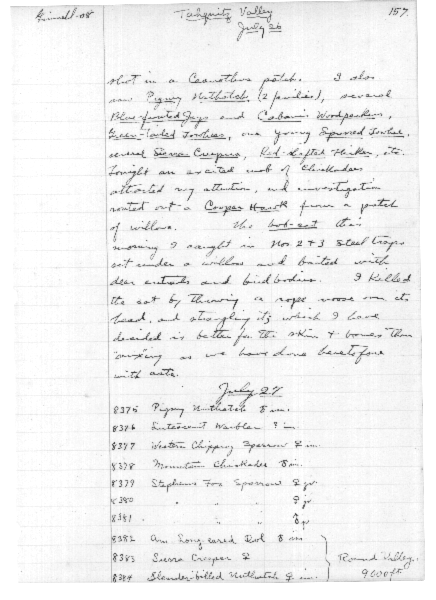 Grinnell-08
Tahquitz Valley
157.
July 26
shot in a Ceanothus patch. I also
saw Pigmy Nuthatch (2 families), several
Blue-fronted Jays and Cabanis Woodpeckers,
Green-tailed Towhees, one young Spurred Towhee,
several Sierra Creepers, Red-shafted Flicker, etc.
Tonight an excited mob of Chickadees
attracted my attention, and investigation
routed out a Cooper Hawk from a patch
of willows. The bob-cat this
morning I caught in Nos 2+3 steel traps
set under a willow and baited with
deer entrails and bird bodies. I killed
the cat by throwing a rope noose over its
head, and strangling it, which I have
decided is better for the skin + bones than
as we have done heretofore
with cats.
July 27
8375 Pigmy Nuthatch ♂ im.
8376 Lutescent Warbler ? im.
8377 Western Chipping Sparrow ♀ im.
8378 Mountain Chickadee ♂ im.
8379 Stephens Fox Sparrow ♀ jv
8380 " " " ♀ jv
8381 " " " ♂ jv
8382 Am Long-eared Owl ♂ im
8383 Sierra Creeper ♀
8384 Slender-billed Nuthatch ♀ im.
Round Valley.
9000 ft